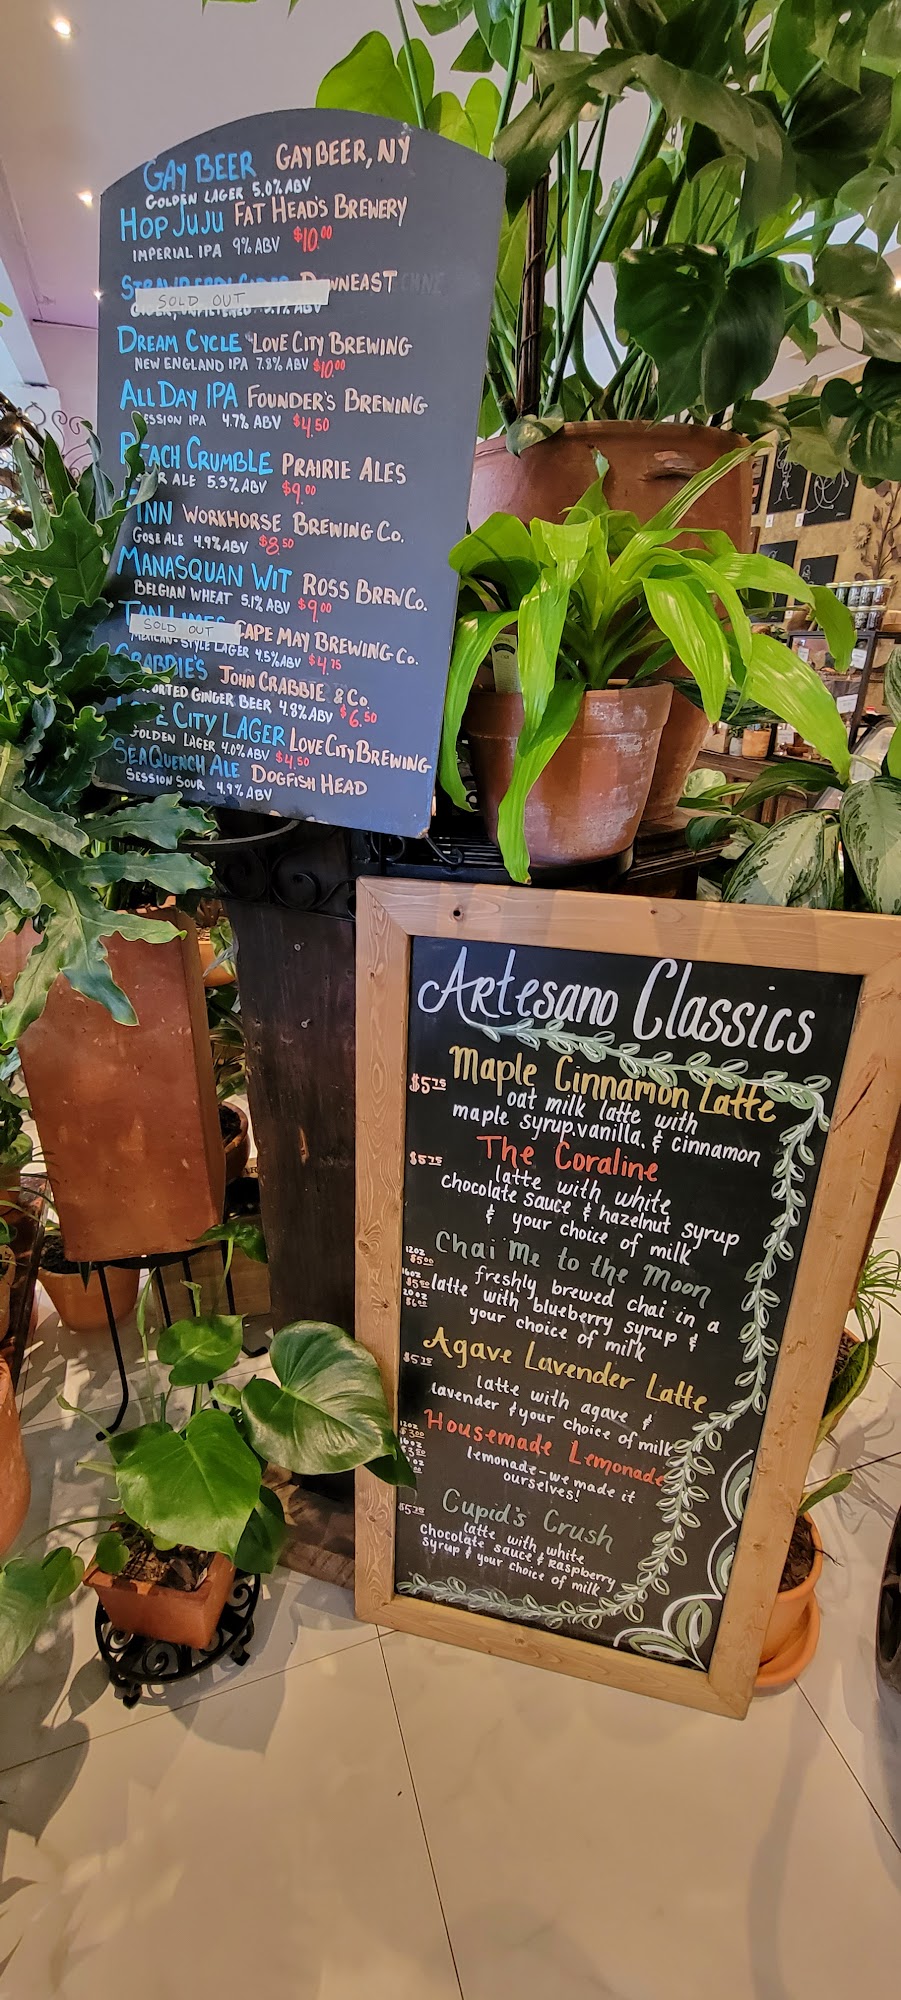 GAY BEER GAYBEER, NY
GOLDEN LAGER 5.0% ABV
HOP JUJU FAT HEAD'S BREWERY
IMPERIAL IPA 9% ABV $10.00
SOLD OUT
DREAM CYCLE LOVE CITY BREWING
NEW ENGLAND IPA 7.3% ABV $10.00
ALL DAY IPA FOUNDER'S BREWING
ESSION IPA 4.7% ABV $4.50
EACH CRUMBLE PRAIRIE ALES
R ALE 5.3% ABV $9.00
INN WORKHORSE BREWING CO.
GOSE ALE 4.9% ABV $8.50
MANASQUAN WIT ROSS BREW CO.
BELGIAN WHEAT 5.1% ABV $9.00
CAPE MAY BREWING CO.
SOLD OUT
-STYLE LAGER 4.5% ABV $4.75
CRABBIE'S JOHN CRABBIE & CO.
ORTED GINGER BEER 4.8% ABV $6.50
LOVE CITY LAGER LOVE CITY BREWING
GOLDEN LAGER 4.0% ABV $4.50
SEAQUENCH ALE DOGFISH HEAD
SESSION SOUR 4.9% ABV
Artesano Classics
$5.75 Maple Cinnamon Latte
oat milk latte with
maple syrup, vanilla, & cinnamon
$5.75 The Coraline
latte with white
chocolate sauce & hazelnut syrup
& your choice of milk
Chai Me to the Moon
12oz $5.00
freshly brewed chai in a
16oz
latte with blueberry syrup &
20oz $6.00
your choice of milk
Agave Lavender Latte
$5.75
latte with agave &
lavender & your choice of milk
Housemade Lemonade
12oz $3.00
lemonade - we made it
ourselves!
$5.75 Cupid's Crush
latte with white
chocolate sauce & raspberry
syrup & your choice of milk